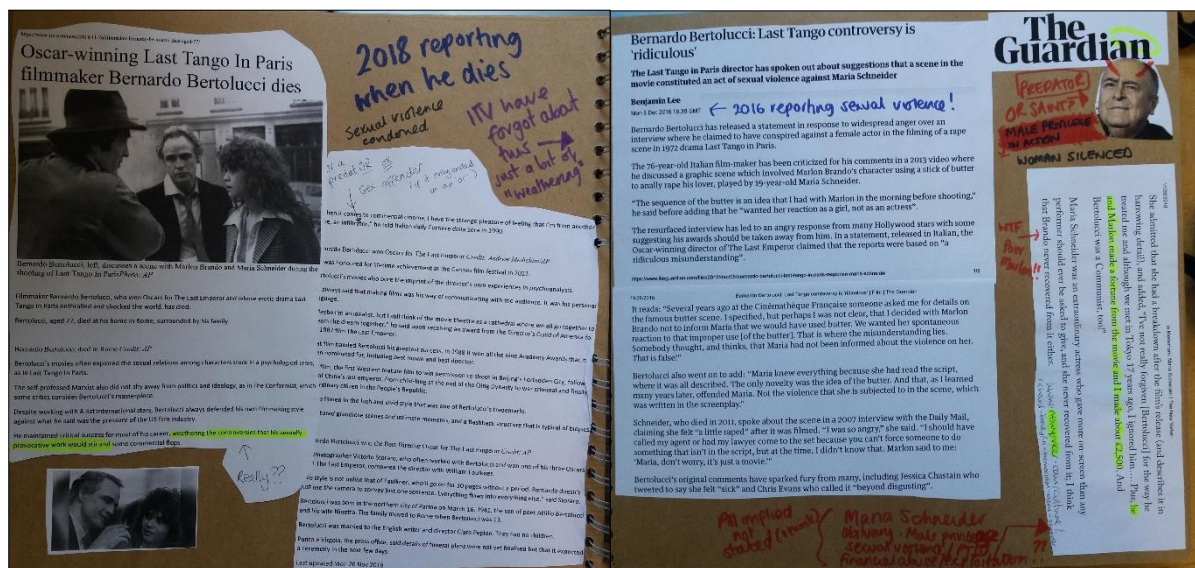 Oscar-winning Last Tango In Paris
filmmaker Bernardo Bertolucci dies
2018 reporting
when he dies
Sexual violence
condoned
ITV have
forgot about
this
just a lot of
"weathering"
Bernardo Bertolucci, left, discusses a scene with Marlon Brando and Maria Schneider during the
shooting of Last Tango In Paris Photo: AP
Filmmaker Bernardo Bertolucci, who won Oscars for The Last Emperor and whose erotic drama Last
Tango In Paris enthralled and shocked the world, has died.
Bertolucci, aged 77, died at his home in Rome, surrounded by his family.
Bernardo Bertolucci died in Rome Credit: AP
Bertolucci's movies often explored the sexual relations among characters stuck in a psychological crisis,
as in Last Tango In Paris.
The self-professed Marxist also did not shy away from politics and ideology, as in The Conformist, which
some critics consider Bertolucci's masterpiece.
Despite working with A-list international stars, Bertolucci always defended his own filmmaking style
against what he said was the pressure of the US film industry.
He maintained critical success for most of his career, weathering the controversies that his sexually
provocative work would stir and some commercial flops.
Really??
predator OR
sex offender
When it comes to commercial cinema, I have the strange pleasure of feeling that I'm from another
told Italian daily Corriere della Sera in 1990.
Bernardo Bertolucci won Oscars for The Last Emperor Credit:
was honoured for lifetime achievement at the Cannes film festival in
movies also bore the imprint of the director's own experiences in psychoanalysis.
always said that making films was his way of communicating with the audience. It was his personal
language.
idealist, but I still think of the movie theatre as a cathedral where we all go together to
dream the dream together," he said upon receiving an award from the Director's Guild of America for
1987 film The Last Emperor.
That film handed Bertolucci his greatest success. In 1988 it won all the nine Academy Awards that it
nominated for, including best movie and best director.
film, the first Western feature film to win permission to shoot in Beijing's Forbidden City, follow
of China's last emperor, from child-king at the end of the Qing Dynasty to war criminal and finally
ordinary citizen in the People's Republic.
is filmed in the lush and vivid style that was one of Bertolucci's trademarks.
grandiose scenes and intimate moments, and a flashback structure that is typical of biopics
Bernardo Bertolucci won the Best Director Oscar for The Last Emperor Credit: AP
Cinematographer Vittorio Storaro, who often worked with Bertolucci and won one of his three Oscars
The Last Emperor, compared the director with William Faulkner.
style is not unlike that of Faulkner, who'll go on for 30 pages without a period. Bernardo doesn't
just use the camera to convey just one sentence. Everything flows into everything else," said Storaro.
Bertolucci was born in the northern city of Parma on March 16, 1941, the son of poet Attilio Bertolucci
and his wife Ninetta. The family moved to Rome when Bertolucci was 13.
Bertolucci was married to the English writer and director Clare Peploe. They had no children.
the press office, said details of funeral plans were not yet finalised but that it expected
a ceremony in the next few days
Last updated Mon 26 Nov 2018
Bernardo Bertolucci: Last Tango controversy is
'ridiculous'
The Last Tango in Paris director has spoken out about suggestions that a scene in the
movie constituted an act of sexual violence against Maria Schneider
Benjamin Lee
Mon 5 Dec 2016 16.39 GMT
← 2016 reporting sexual violence!
Bernardo Bertolucci has released a statement in response to widespread anger over an
interview where he claimed to have conspired against a female actor in the filming of a rape
scene in 1972 drama Last Tango in Paris.
The 76-year-old Italian film-maker has been criticized for his comments in a 2013 video where
he discussed a graphic scene which involved Marlon Brando's character using a stick of butter
to anally rape his lover, played by 19-year-old Maria Schneider.
"The sequence of the butter is an idea that I had with Marlon in the morning before shooting,"
he said before adding that he "wanted her reaction as a girl, not as an actress".
The resurfaced interview has led to an angry response from many Hollywood stars with some
suggesting his awards should be taken away from him. In a statement, released in Italian, the
Oscar-winning director of The Last Emperor claimed that the reports were based on "a
ridiculous misunderstanding".
1/3
It reads: "Several years ago at the Cinémathèque Française someone asked me for details on
the famous butter scene. I specified, but perhaps I was not clear, that I decided with Marlon
Brando not to inform Maria that we would have used butter. We wanted her spontaneous
reaction to that improper use [of the butter]. That is where the misunderstanding lies.
Somebody thought, and thinks, that Maria had not been informed about the violence on her.
That is false!"
Bertolucci also went on to add: "Maria knew everything because she had read the script,
where it was all described. The only novelty was the idea of the butter. And that, as I learned
many years later, offended Maria. Not the violence that she is subjected to in the scene, which
was written in the screenplay."
Schneider, who died in 2011, spoke about the scene in a 2007 interview with the Daily Mail,
claiming she felt "a little raped" after it was filmed. "I was so angry," she said. "I should have
called my agent or had my lawyer come to the set because you can't force someone to do
something that isn't in the script, but at the time, I didn't know that. Marlon said to me:
'Maria, don't worry, it's just a movie.'"
Bertolucci's original comments have sparked fury from many, including Jessica Chastain who
tweeted to say she felt "sick" and Chris Evans who called it "beyond disgusting".
The
Guardian
PREDATOR
OR SAINT?
MALE PRIVILEGE
IN ACTION
WOMAN SILENCED
WTF
Poor
Marlon!!
She admitted that she had a breakdown after the film's release (and describes it in
harrowing detail), and added, "I've not really forgiven [Bertolucci] for the way he
treated me and although we met in Tokyo 17 years ago, I ignored him… Plus, he
and Marlon made a fortune from the movie and I made about £2,500. And
Bertolucci was a Communist, too!"
Maria Schneider was an extraordinary actress who gave more on-screen than any
performer should ever be asked to give, and she never recovered from it; I think
that Brando never recovered from it either.
All implied
not
stated (truth)
Maria Schneider
Male privilege
sexual violence / PTSD
financial abuse / exploitation
??